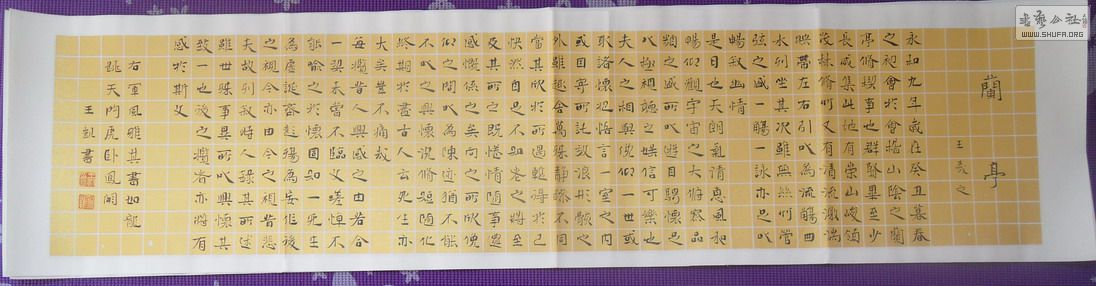 蘭亭
王羲之
永和九年歲在癸丑暮春
之初會於會稽山陰之蘭
亭脩禊事也群賢畢至少
長咸集此地有崇山峻領
茂林脩竹又有清流激湍
映帶左右引以為流觴曲
水列坐其次雖無絲竹管
弦之盛一觴一詠亦足以
暢敘幽情
是日也天朗氣清惠風和
暢仰觀宇宙之大俯察品
類之盛所以遊目騁懷足
以極視聽之娛信可樂也
夫人之相與俯仰一世或
取諸懷抱悟言一室之內
或因寄所託放浪形骸之
外雖趣舍萬殊靜躁不同
當其欣於所遇暫得於己
快然自足不知老之將至
及其所之既惓情隨事遷
感慨係之矣向之所欣俛
仰之間以為陳迹猶不能
不以之興懷況脩短隨化
終期於盡古人云死生亦
大矣豈不痛哉
每攬昔人興感之由若合
一契未嘗不臨文嗟悼不
能喻之於懷固知一死生
為虛誕齊彭殤為妄作後
之視今亦由今之視昔悲
夫故列敘時人錄其所述
雖世殊事異所以興懷其
致一也後之攬者亦將有
感於斯文
右軍風雅其書如龍
跳天門虎臥鳳闕
王凱書
書藝公社
WWW.SHUFA.ORG